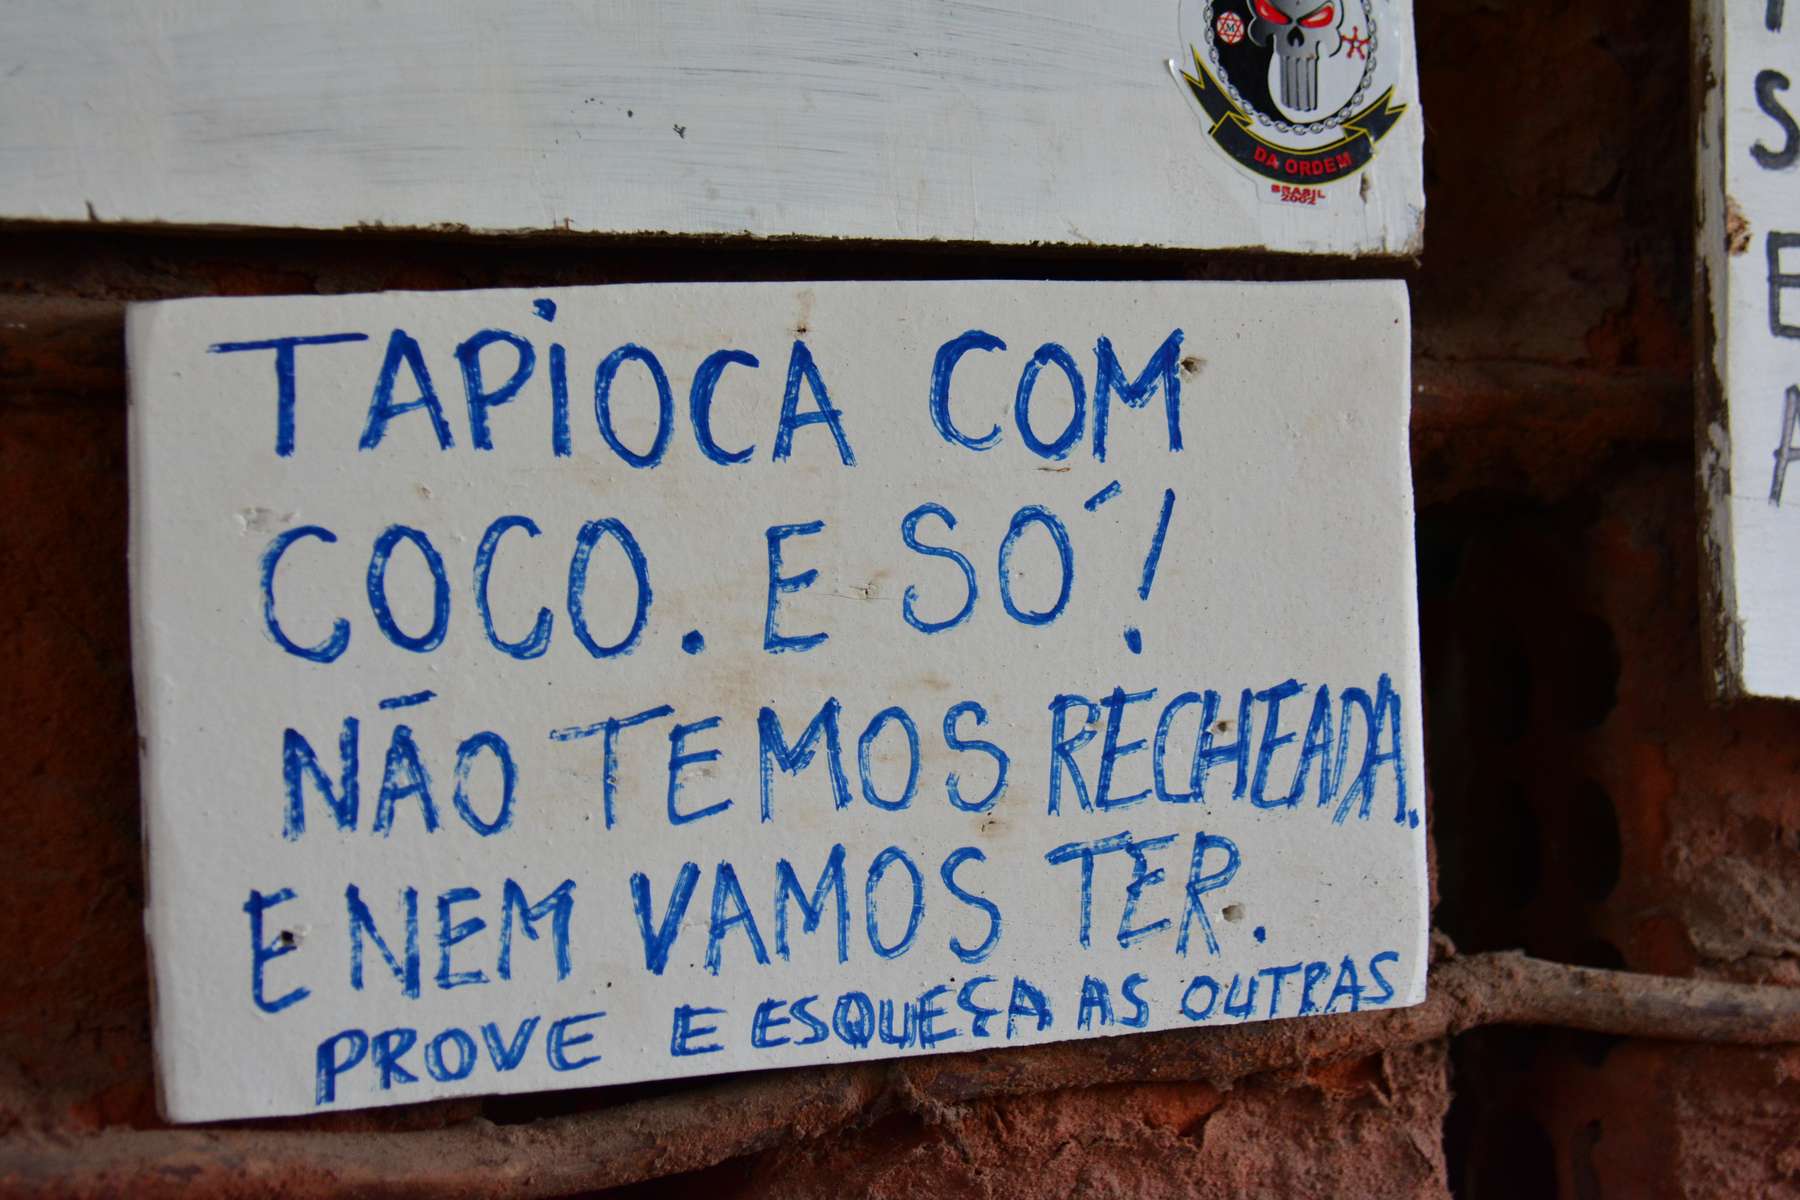 DA ORDEM
BRASIL
2002
TAPIOCA COM
COCO. E SÓ!
NÃO TEMOS RECHEADA.
E NEM VAMOS TER.
PROVE E ESQUEÇA AS OUTRAS
S
E
A